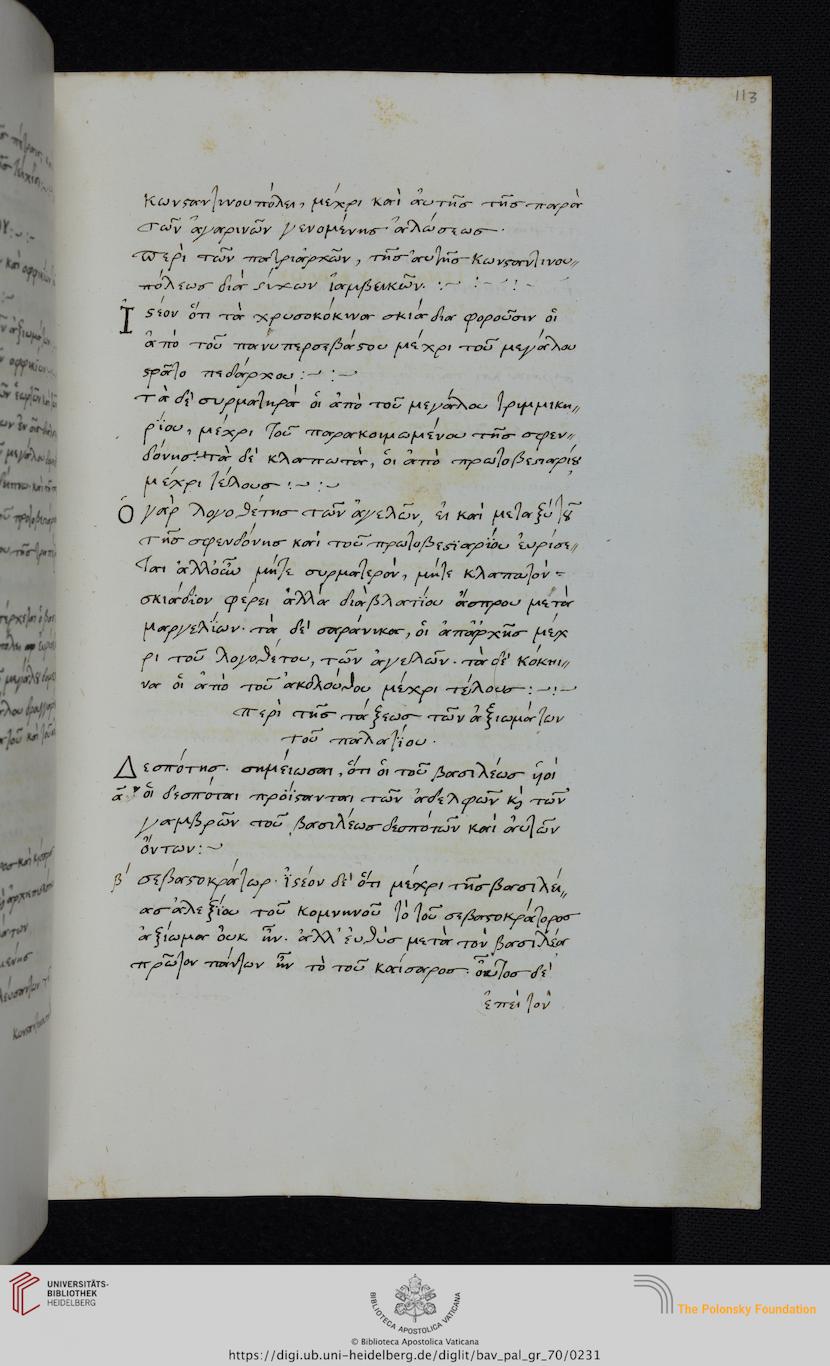 113
κωνσταντινουπόλει, μέχρι καὶ ἀυτῆς τῆς παρὰ
τῶν ἀγαρινῶν γενομένης ἁλώσεως·
περὶ τῶν πατριάρχῶν, τῆς ἀυτῆς κωνσταντινου〃
πόλεως διὰ στίχων ἰαμβεικῶν· :~ :~ :~
Ἰστέον ὅτι τὰ χρυσοκόκινα σκιάδια φοροῦσιν οἱ
ἀπὸ τοῦ πανυπερσεβάστου μέχρι τοῦ μεγάλου
στρατοπεδάρχου :~ :~
τὰ δὲ συρματηρὰ οἱ ἀπὸ τοῦ μεγάλου τριμμικη〃
ρίου, μέχρι τοῦ παρακοιμωμένου τῆς σφεν〃
δόνης: τὰ δὲ κλαπωτὰ, οἱ ἀπὸ πρωτοβεστιαρίου
μέχρι τέλους :~ :~
Ὁ γὰρ λογοθέτης τῶν ἀγελῶν, εἰ καὶ μεταξὺ τοῦ
τῆς σφενδόνης καὶ τοῦ πρωτοβεστιαρίου ἑυρίσε〃
ται ἀλλ' οὖν μήτε συρματερὸν, μήτε κλαπωτὸν
σκιάδιον φέρει ἀλλὰ διὰβλατίου ἄσπρου μετὰ
μαργελίων· τὰ δὲ σαράνικα, οἱ ἀπἀρχῆς μέχ
ρι τοῦ λογοθέτου, τῶν ἀγελῶν· τὰ δὲ κόκηι〃
να οἱ ἀπὸ τοῦ ἀκολούθου μέχρι τέλους :~ :~
περὶ τῆς τάξεως τῶν ἀξιωμάτων
τοῦ παλατίου·
Δεσπότης· σημείωσαι, ὅτι οἱ τοῦ βασιλέως ὑοὶ
α οἱ δεσπόται πρόϊστανται τῶν ἀδελφῶν κ τῶν
γαμβρῶν τοῦ βασιλέως δεσπότων καὶ ἀυτῶν
ὄντων :~
β´ σεβαστοκράτωρ· ἰστέον δὲ ὅτι μέχρι τῆς βασιλεί〃
ας ἀλεξίου τοῦ κομνηνοῦ τὸ τοῦ σεβαστοκράτορος
ἀξίωμα ὀυκ ἦν· ἀλλ' ἐυθὺς μετὰ τὸν βασιλέα
πρῶτον πάντων ἦν τὸ τοῦ καίσαρος· οὗτος δὲ
ἐπεὶ τὸν
UNIVERSITÄTS-
BIBLIOTHEK
HEIDELBERG
BIBLIOTECA APOSTOLICA VATICANA
The Polonsky Foundation
© Biblioteca Apostolica Vaticana
https://digi.ub.uni-heidelberg.de/diglit/bav_pal_gr_70/0231